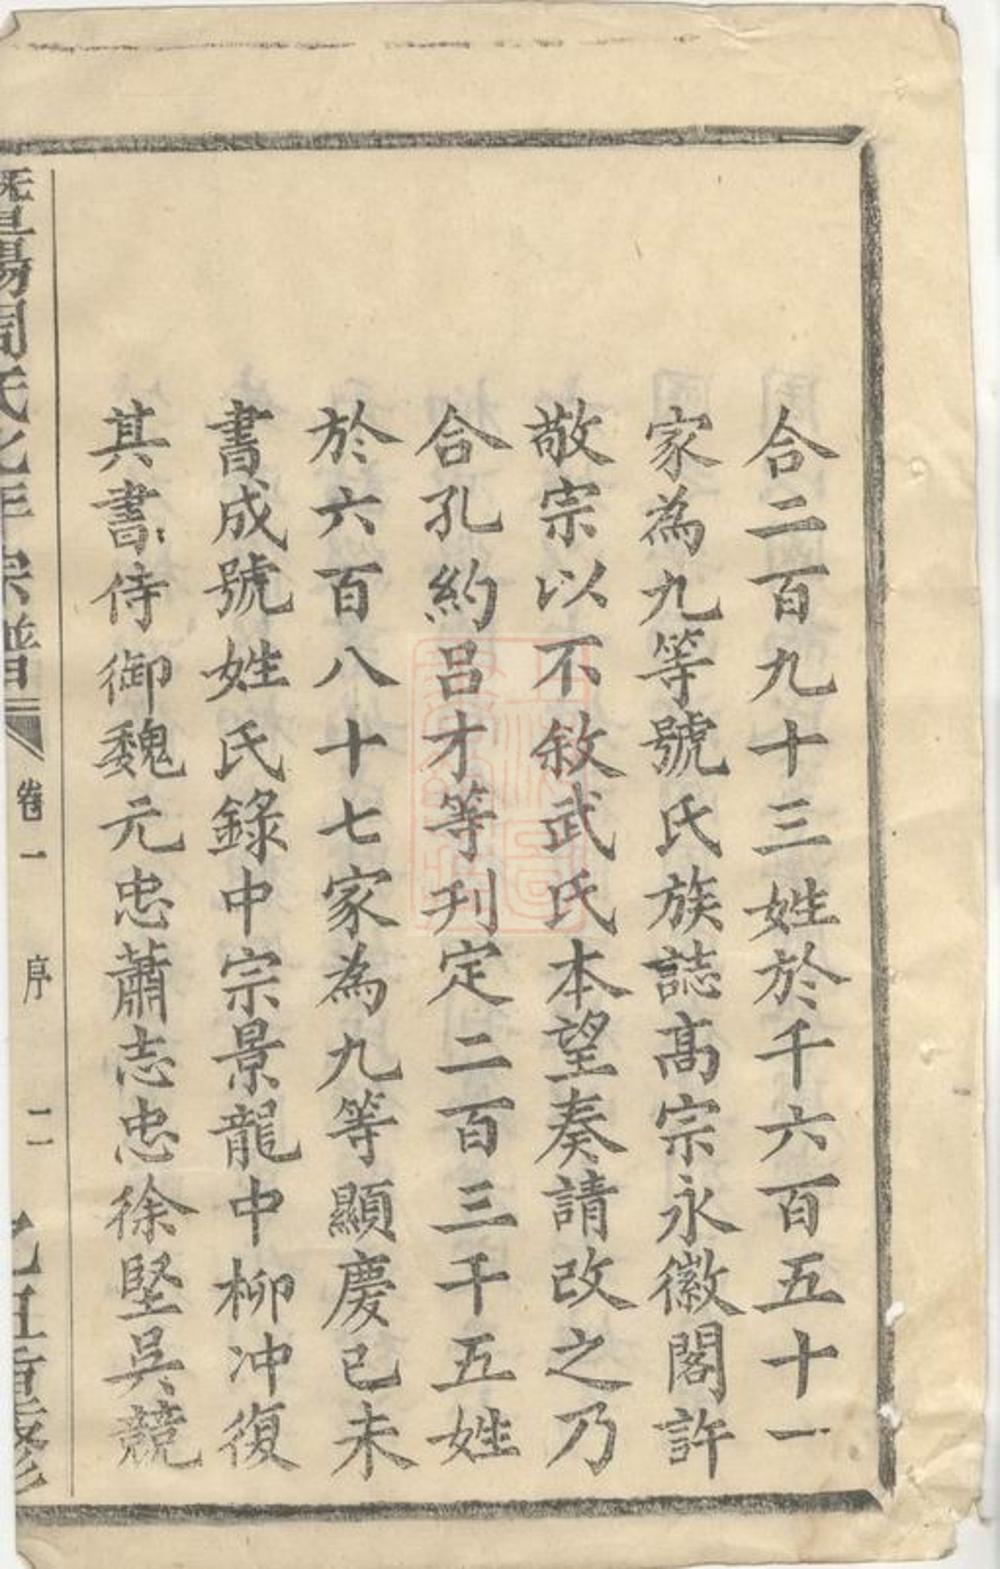 合二百九十三姓於千六百五十一
家為九等號氏族誌高宗永徽閣許
敬宗以不敘武氏本望奏請改之乃
合孔約呂才等刊定二百三千五姓
於六百八十七家為九等顯慶已未
書成號姓氏錄中宗景龍中柳冲復
其書侍御魏元忠蕭志忠徐堅吳競
暨陽周氏 宗譜 卷一 序 二 重修